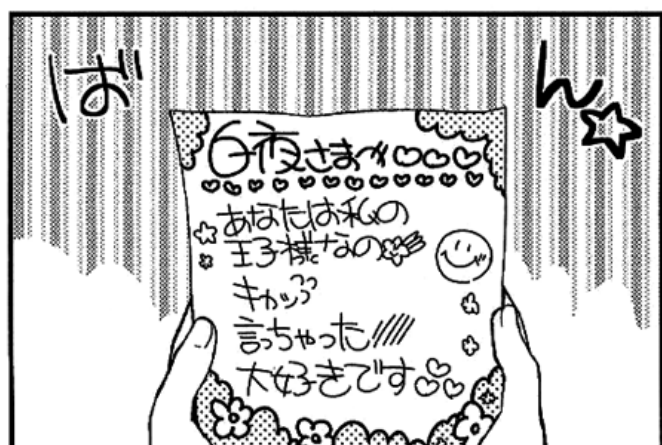 ばん☆
白夜さま〜〃♡♡♡
あなたは私の
王子様なの
キャッっっ
言っちゃった////
大好きです♡♡♡